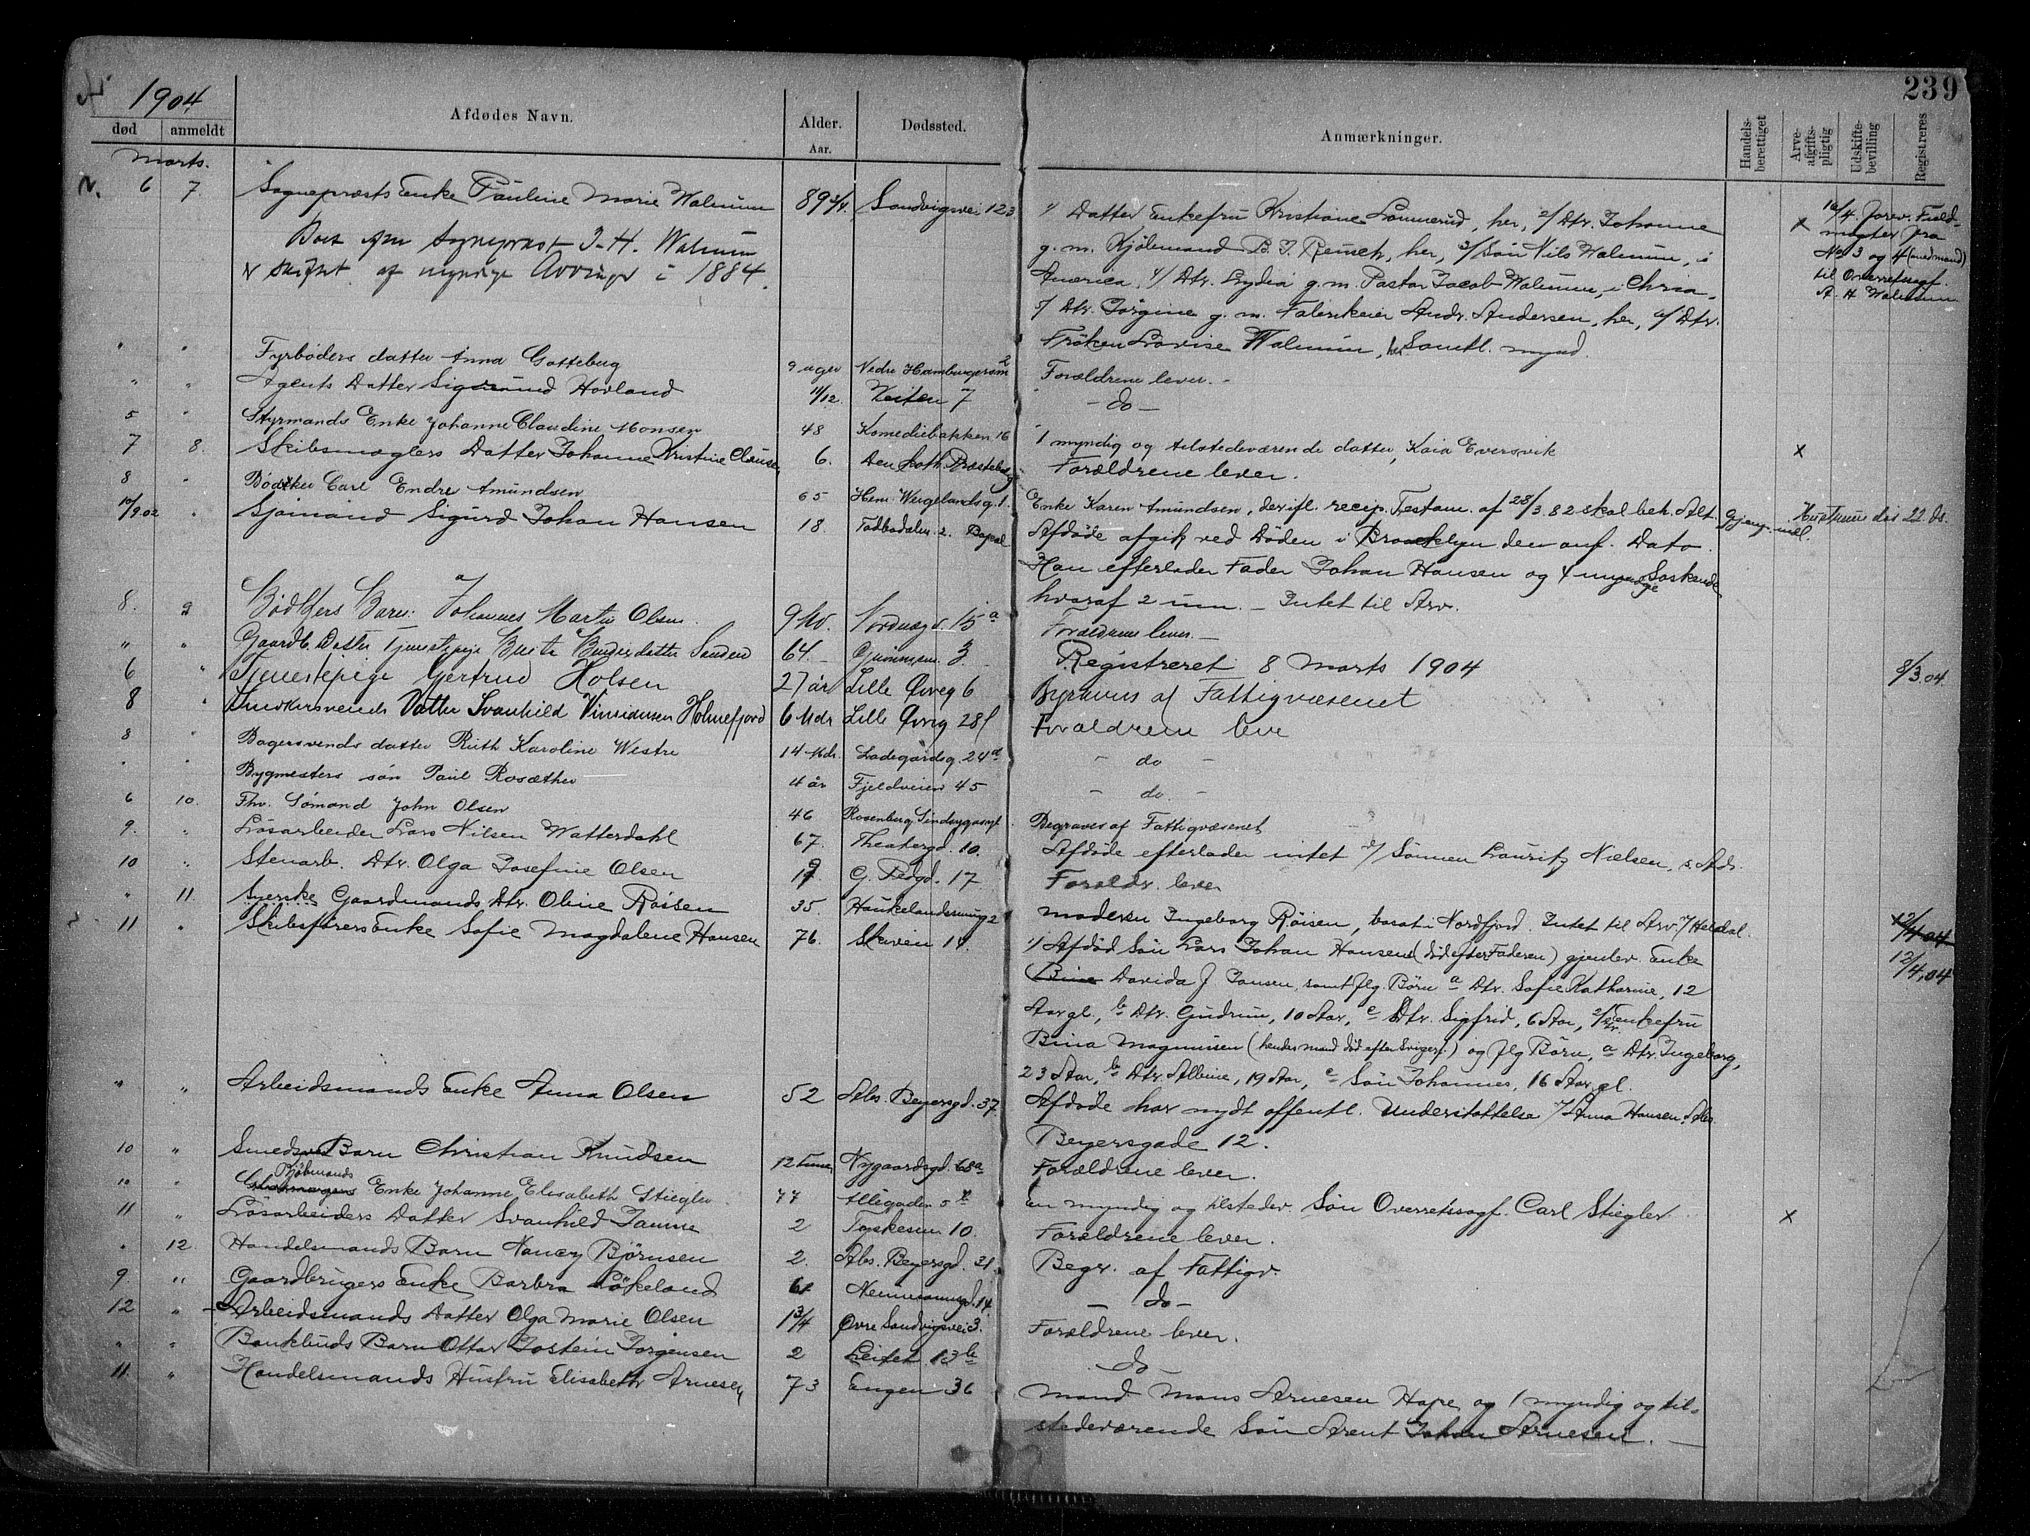 239
1904
død anmeldt Afdødes Navn. Alder. Aar. Dødssted. Anmærkninger. Handels-berettiget Arve-afgifts-pligtig Udskifte-bevilling Registreres
Marts.
6 7 Sognepræsts Enke Pauline Marie Walnum 89 3/4 Sandvigsvei 123 1/ Datter Enkefru Kristiane Lonnerud, her, 2/ Dtr. Johanne x
Boet efter Sognepræst J. H. Walnum g. m. Kjøbmand B. J. Reusch, her, 3/ Søn Nils Walnum, i
er skiftet af myndige Arvinger i 1884. America, 4/ Dtr. Lydia g. m. Pastor Jacob Walnum, i Chra.,
5/ Dtr. Jörgine g. m. Fabrikeier Andr. Andersen, her, 6/ Dtr.
Frøken Lovise Walnum, her. Samtl. mynd.
16/4. Forev. Fuld-
magter fra
No 3 og 4 (m. mand)
til Overretssagf.
A. H. Walnum
" " Fyrbøders datter Anna Gotteberg 9 uger Nedre Hamburgersm. 2 Forældrene lever. -
" " Agents Datter Sigrund Hovland 11/12. Veiten 7 - do -
5 " Styrmands Enke Johanne Claudine Monsen 48 Komediebakken 16 1 myndig og tilstedeværende datter, Kaia Eversvik x
7 8. Skibsmæglers Datter Johanne Kristine Clausen 6. Den kath. Præstebolig Forældrene lever.
8 " Bødker Carl Endre Amundsen 65 Henr. Wergelandsg. 1. Enke Karen Amundsen, der ifl. recip. Testam. af 28/3 82 skal beh. Alt Gjens. mæl.
10/9.02 " Sjømand Sigurd Johan Hansen 18 Tadbodalm. 2. Afdøde afgik ved Døden i Brooklyn den anf. Dato.
Han efterlader Fader Johan Hansen og 4 myndige Søskende
hvoraf 2 um. - Intet til Arv.
8. 9 Bødkers Barn: Johannes Martin Olsen 9 Md. Nordnæsg. 15 a Forældrene lever. -
" " Gaardb. Datter Tjenestepige Sanden 64. 3 Registreret 8 Marts 1904 8/3.04.
6 " Tjenestepige Gertrud Holsen 27 år Lille Øvreg 6 Begraves af Fattigvæsenet
8 " Snedkersvends Datter Svanhild Vinsiansen Holmefjord 6 Mdr Lille Øvreg 28 f Forældrene leve
8 " Bagersvends datter Ruth Karoline Westre 14 Mdr. Ladegårdsg. 24 d - do -
" " Bygmesters søn Paul Rosæther 4 år Fjeldveien 45 - do. -
6 10. Fhv. Sømand John Olsen 46 Rosenberg Sindsygeasyl Begraves af Fattigvæsenet
9. " Løsarbeider Lars Nilsen Watterdahl 67. Theatergd. 10. Afdøde efterlader intet 1/ Sønnen Lauritz Nielsen, s. Adr.
10 " Stenarb. Dtr. Olga Josefine Olsen G. Pedgd. 17 Forældr. lever
" 11 Syerske Gaardmands Dtr. Oline Røisen 35. Haukelandssmug 2 Moderen Ingeborg Røisen, bosat i Nordfjord. Intet til Arv.
11 " Skibsførers Enke Sofie Magdalene Hansen 76. Skiveien 14 1/ Afdød Søn Lars Johan Hansens (død efter Faderen) gjenlev. Enke 12/4.04
Bina Davida J. Hansen, samt flg. Børn a Dtr. Sofie Katharine, 12 12/4.04
Aar gl., b Dtr. Gudrun, 10 Aar, c Dtr. Sigfrid, 6 Aar, 2/ Dtr. Enkefru
Bina Magnusen (hendes mand død efter Svigerf.) og flg Børn, a Dtr. Ingeborg,
23 Aar, b Dtr. Albine, 19 Aar, c Søn Johannes, 16 Aar gl.
" " Arbeidsmands Enke Anna Olsen 52 Abs. Beyersgd. 37. Afdøde har nydt offentl. Understøttelse 1/ Anna Hansen, Abs.
Beyersgade 12.
10 " Smeds Barn Christian Knudsen 12 Timer Nygaardsgd. 68 a Forældrene lever.
10 " Kjøbmands Enke Johanne Elisabeth Stiegler 77 Allegaden 5 En myndig og tilstedev. Søn Overretssagf. Carl Stiegler. x
11 " Løsarbeiders Datter Svanhild Janne 2 Tyskesm 10. Forældrene lever.
" 12. Handelsmands Barn Nancy Bjørnsen 2. Abs. Beyersgd. 21. Begr. af Fattigv.
9. " Gaardbrugers Enke Barbra Løkeland 61 14 - do -
12 " Arbeidsmands Datter Olga Marie Olsen 1 3/4 Øvre Sandvigsvei 3. Forældrene lever.
" " Bankbuds Barn Ottar Jostein Jørgensen 2 Leitet 13 b do -
11. " Handelsmands Hustru Elisabeth Arnesen 73 Engen 36 Mand Mons Arnesen Hope og 1 myndig og til-
stedeværende Søn Arent Johan Arnesen. -